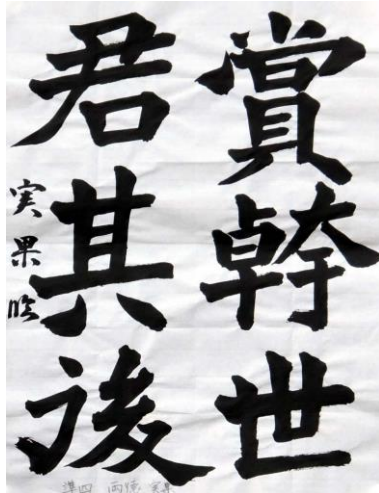 賞幹世
君其後
実果臨
準四 実果